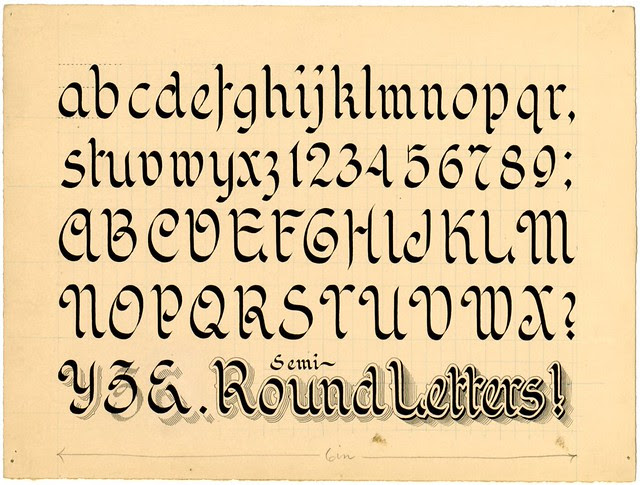 abcdefghijklmnopqr,
stuvwyxz123456789;
ABCDEFGHIJKLM
NOPQRSTUVWX?
YZ&. Semi~ Round Letters!
6in